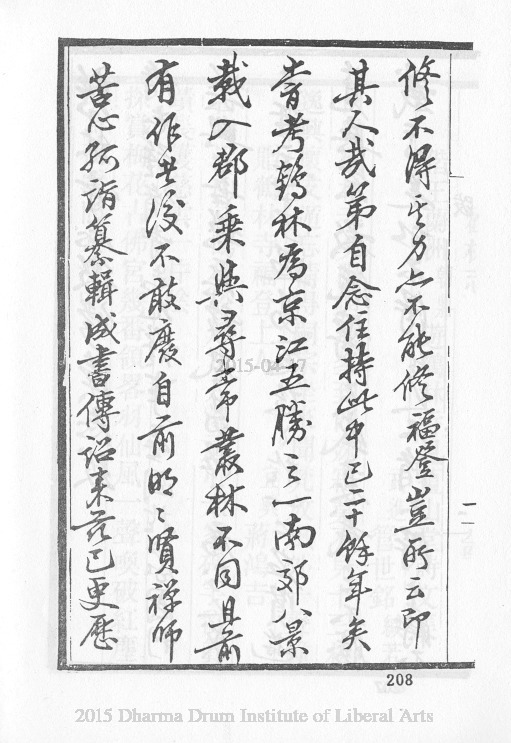 修不得其力亦不能修福登豈所云即
其人哉第自念住持此中已二十餘年矣
嘗考鶴林為京江五勝之一南郊八景
載入郡乘與尋常叢林不同且前
有作者後不敢廢自前明明賢禪師
苦心孤詣纂輯成書傳詔來茲已更歷
208
2015-04-27
2015 Dharma Drum Institute of Liberal Arts